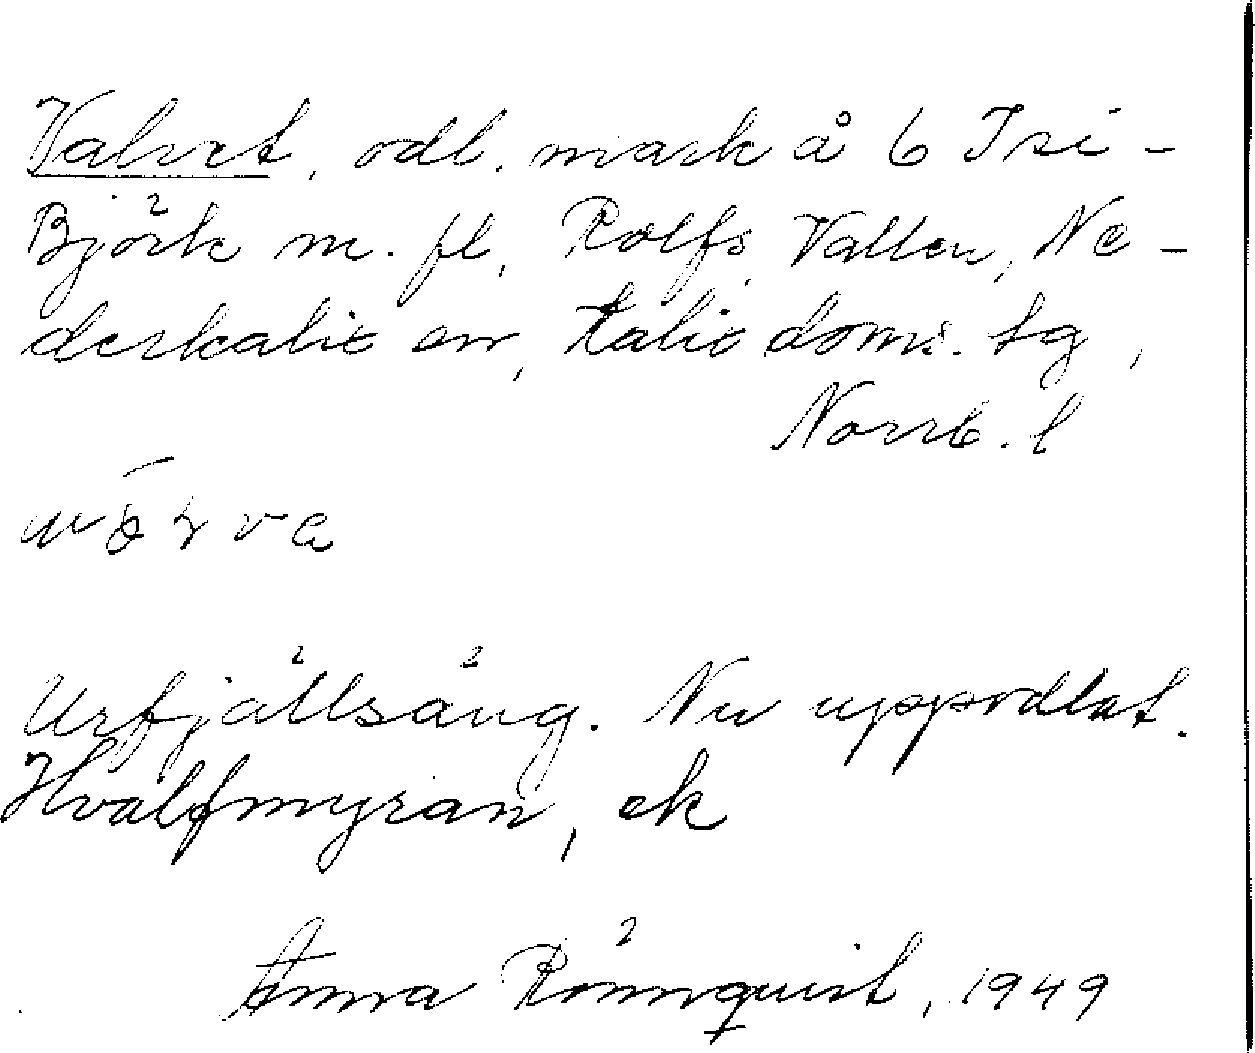 Valvet, odl. mark å 6 Isi-
Björk m. fl., Rolfs, Vallen, Ne-
derkalix sn, Kalix doms. tg,
Norrb. l
Utfjällsäng. Nu uppodlat.
Hvalfmyran, ek
Anna Rönnquist, 1949